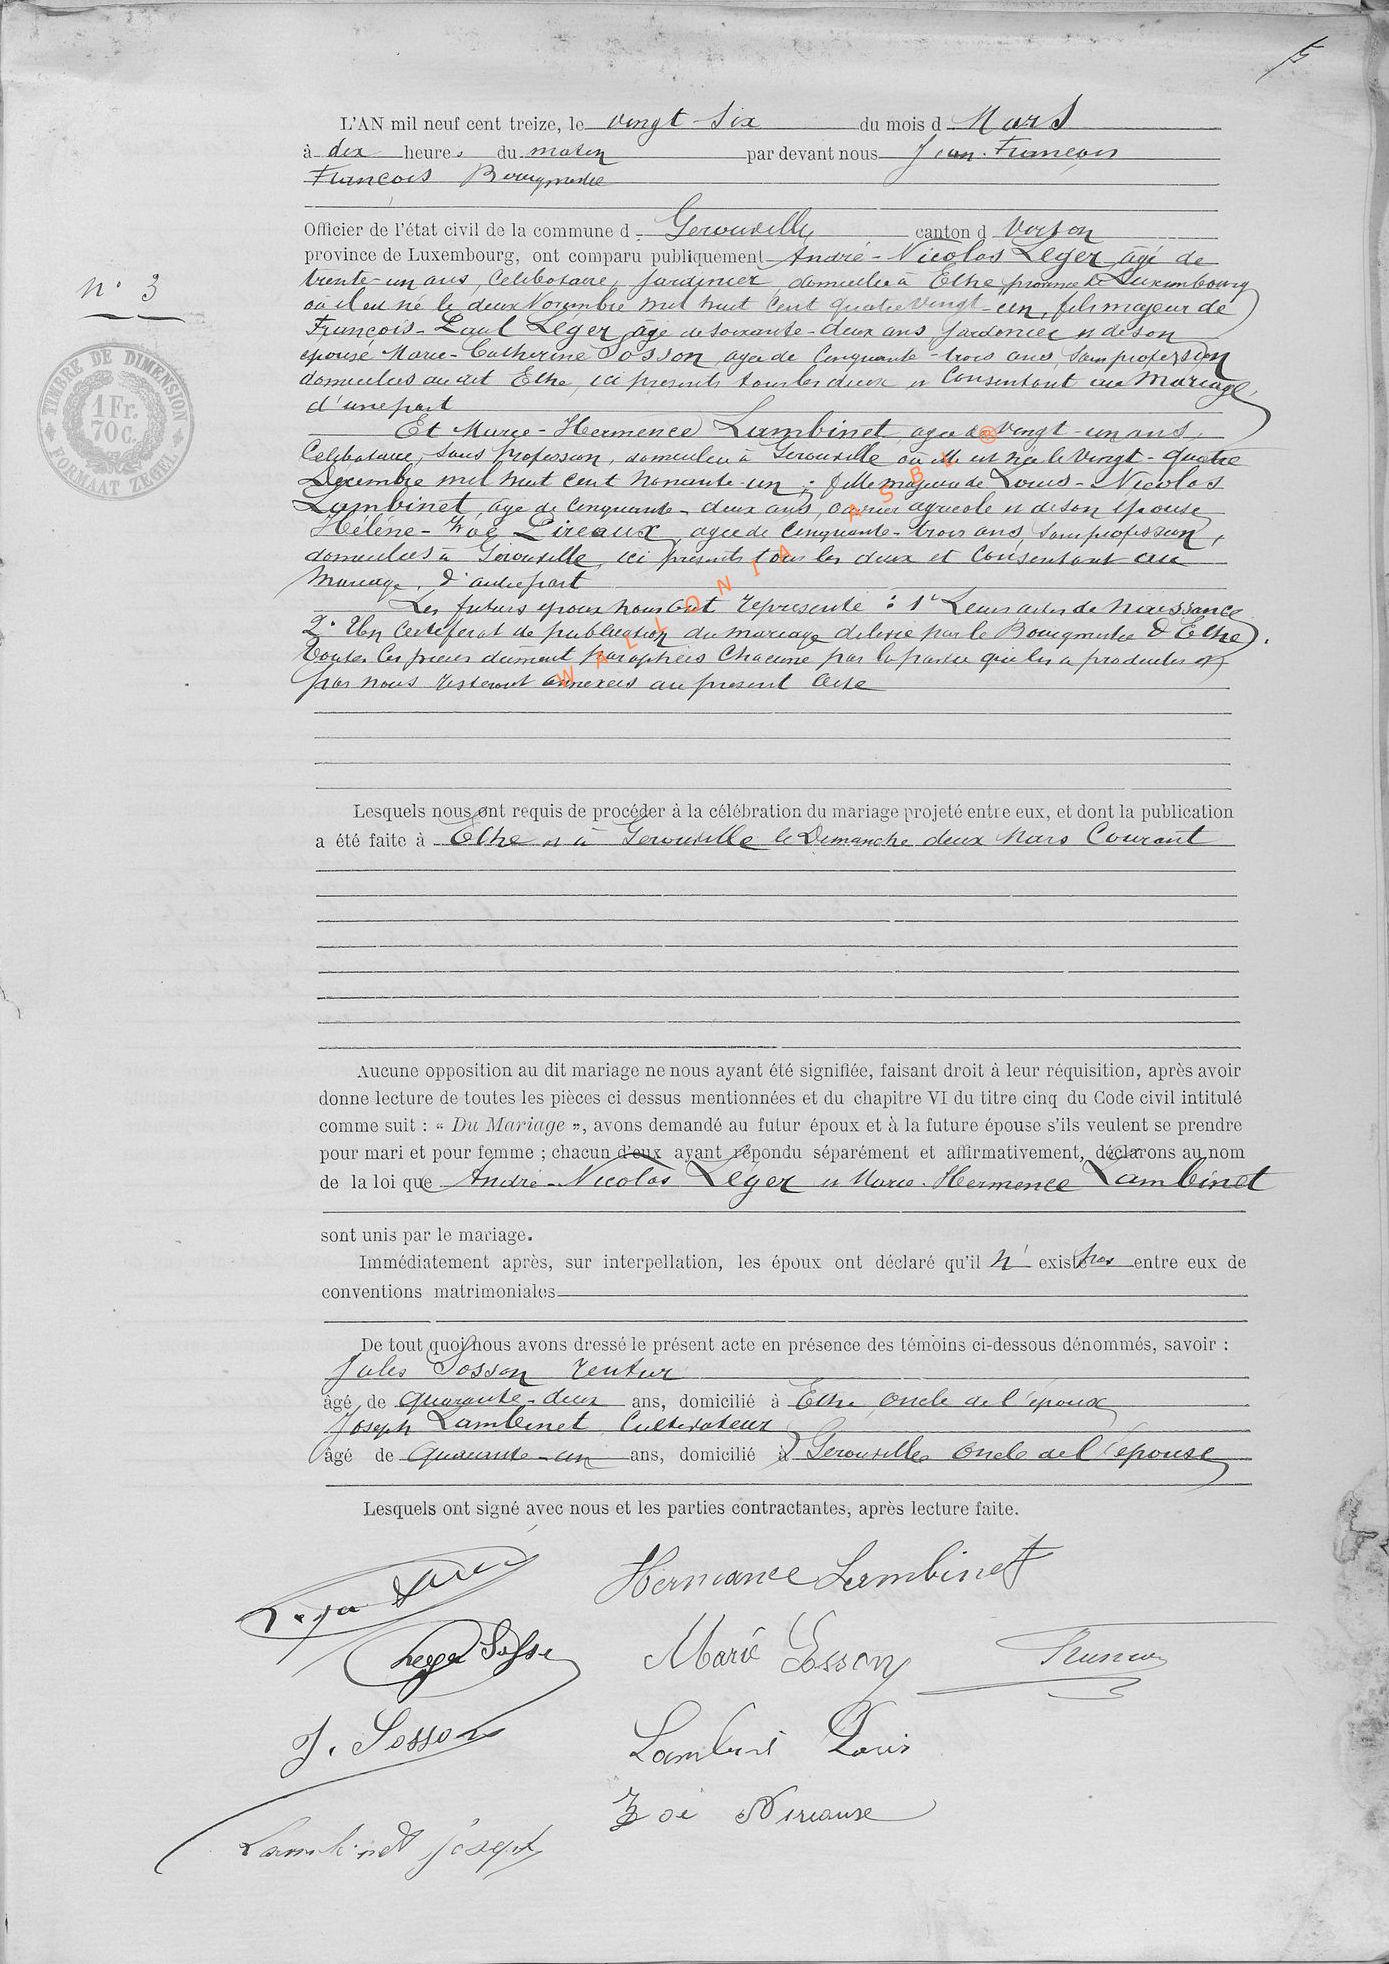 L'AN mil neuf cent treize, le vingt-six du mois d Mars
à dix heures du matin par devant nous Jean-François
François Bourgmestre
Officier de l'état civil de la commune d Gerouville canton d Virton
province de Luxembourg, ont comparu publiquement André-Nicolas Léger âgé de
trente-un ans, Célibataire, Jardinier, domicilié à Ethe province de Luxembourg
où il est né le deux Novembre mil huit cent quatre vingt-un, fils majeur de
François-Paul Léger âgé de soixante-deux ans Jardinier et de son
épouse Marie-Catherine Sosson, agée de Cinquante-trois ans, sans profession
domiciliés au dit Ethe, ici présents tous les deux et Consentant au Mariage,
d'une part
N° 3
TIMBRE DE DIMENSION
1 Fr.
70 C.
FORMAAT ZEGEL
Et Marie-Hermence Lambinet, agée de vingt-un ans,
Célibataire, sans profession, domiciliée à Gerouville où elle est née le Vingt-quatre
Décembre mil huit cent nonante-un ; fille majeure de Louis-Nicolas
Lambinet, age de Cinquante-deux ans, ouvrier agricole et de son épouse
Hélène-Zoé Pireaux, agée de Cinquante-trois ans, sans profession,
domiciliés à Gerouville, ici présents tous les deux et Consentant au
Mariage, d'autre part
Les futurs époux nous ont représenté : 1° Leurs actes de Naissance
2° Un Certificat de publication du mariage délivré par le Bourgmestre d'Ethe.
Toutes les pièces dûment paraphées Chacune par la partie qui les a produites et
par nous resteront annexées au présent acte
WALLONIA ASBL ®
Lesquels nous ont requis de procéder à la célébration du mariage projeté entre eux, et dont la publication
a été faite à Ethe et à Gerouville le Dimanche deux Mars Courant
Aucune opposition au dit mariage ne nous ayant été signifiée, faisant droit à leur réquisition, après avoir
donne lecture de toutes les pièces ci dessus mentionnées et du chapitre VI du titre cinq du Code civil intitulé
comme suit : « Du Mariage », avons demandé au futur époux et à la future épouse s'ils veulent se prendre
pour mari et pour femme ; chacun d'eux ayant répondu séparément et affirmativement, déclarons au nom
de la loi que André-Nicolas Léger et Marie-Hermence Lambinet
sont unis par le mariage.
Immédiatement après, sur interpellation, les époux ont déclaré qu'il n' exist pas entre eux de
conventions matrimoniales
De tout quoi nous avons dressé le présent acte en présence des témoins ci-dessous dénommés, savoir :
Jules Sosson rentier
âgé de quarante-deux ans, domicilié à Ethe, oncle de l'époux
Joseph Lambinet Cultivateur
âgé de quarante-un ans, domicilié à Gerouville oncle de l'épouse
Lesquels ont signé avec nous et les parties contractantes, après lecture faite.
Hermance Lambinet
Marie Sosson
J. Sosson
Lambinet Louis
Zoé Pireaux
Lambinet Joseph